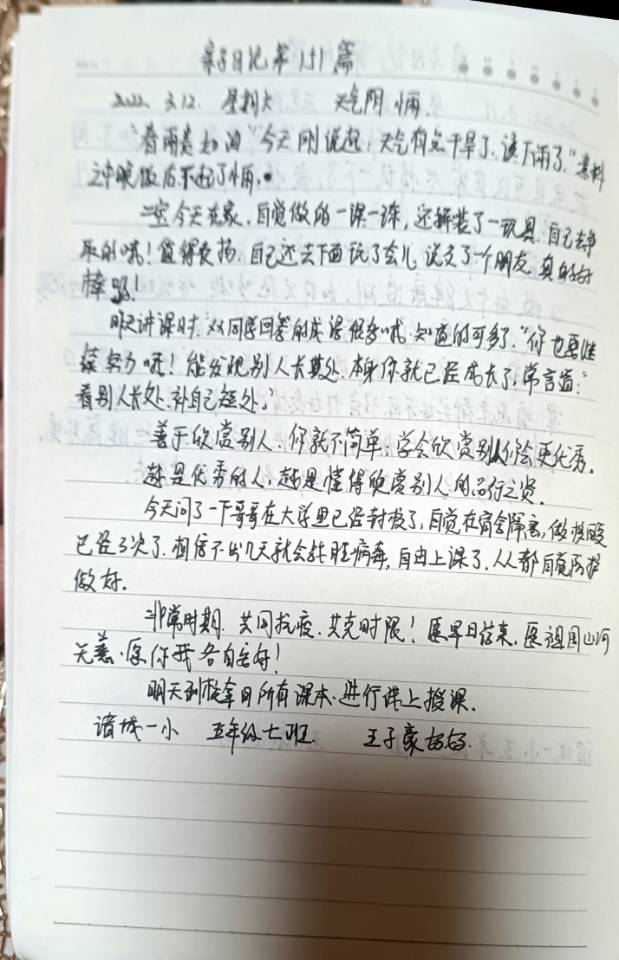 亲子日记第151篇
2022. 3.12. 星期六 天气阴 小雨.
"春雨贵如油"今天刚说起:天气有点干旱了.该下雨了."意料
之中晚饭后下起了小雨.
今天在家.自觉做的一课一练,还拼装了一玩具.自己去争
取的哦!值得表扬.自己还去下面玩了会儿 说交了一个朋友.真的好
棒哦!
昨天讲课时:"XX同学回答的成语很多哦.知道的可多了."你也要继
续努力呀!能发现别人长处.本身你就已经成长了,常言道:"
看别人长处.补自己短处."
善于欣赏别人.你就不简单;学会欣赏别人你会更优秀.
越是优秀的人,越是懂得欣赏别人的品行之贤.
今天问了一下哥哥在大学里已经封校了,自觉在宿舍隔离,做核酸
已经3次了.相信不出几天就会战胜病毒,自由上课了.人人都自觉防护
做好.
非常时期.共同抗疫.共克时艰!愿早日结束,愿祖国山河
无恙.愿你我各自安好!
明天到校拿回所有课本.进行线上授课.
诸城一小 五年级七班. 王子豪妈妈.